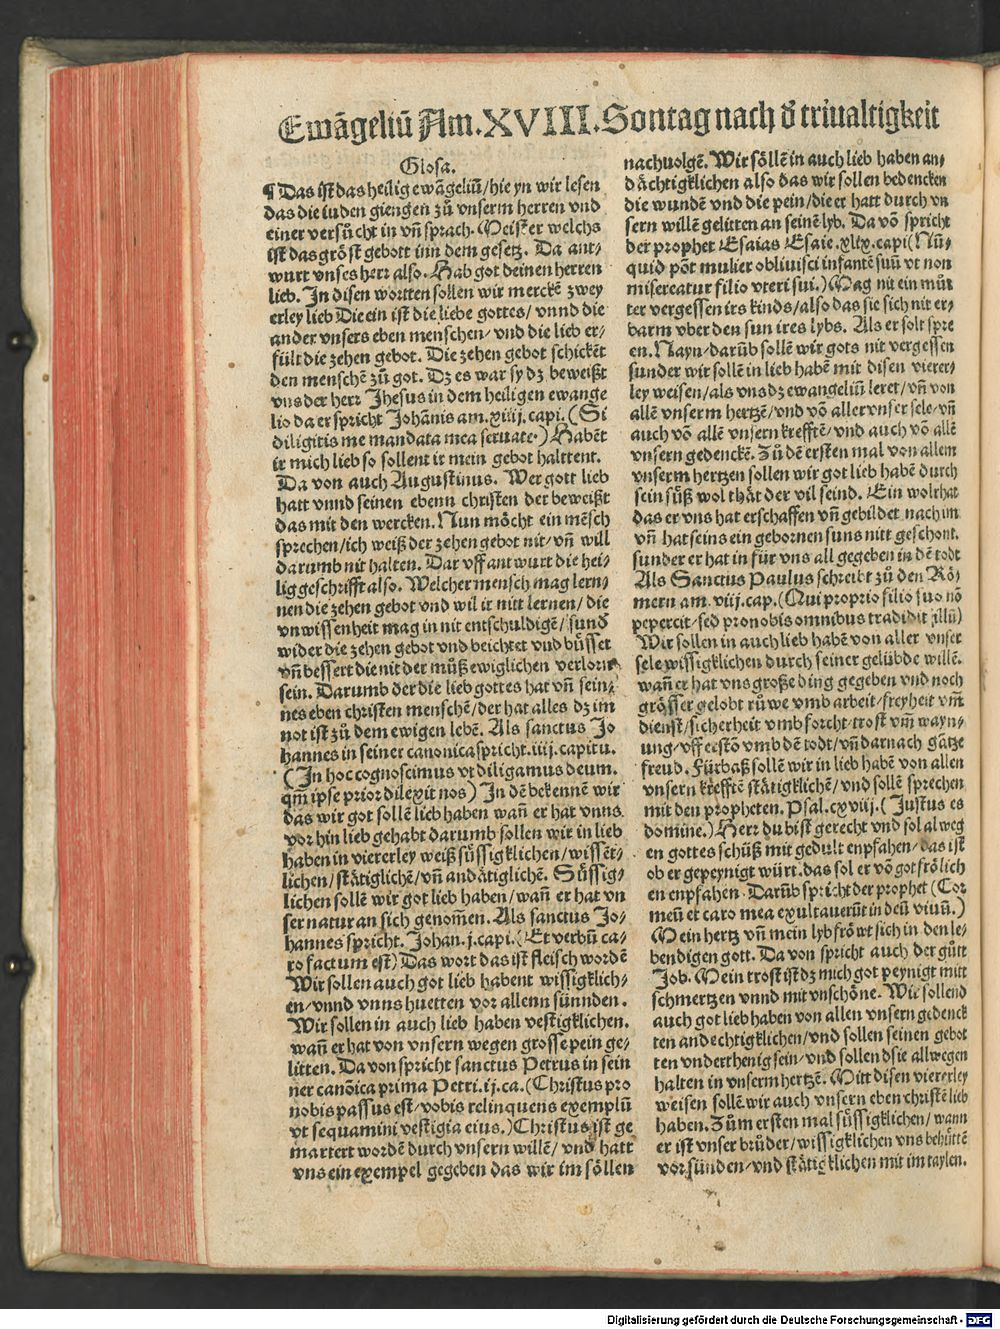 Ewãgeliũ Am.XVIII.Sontag nach ð triualtigkeit
Glosa.
¶ Das ist das heilig ewãgeliũ/hie yn wir lesen
das die iuden giengen zů vnserm herren vnd
einer versůcht in vñ sprach. Meister welchs
ist das gröst gebott inn dem gesetz. Da ant⸗
wurt vnses herr also. Hab got deinen herren
lieb. In disen wortten sollen wir merckẽ zwey
erley lieb Die ein ist die liebe gottes/vnnd die
ander vnsers eben menschen/vnd die lieb er⸗
fült die zehen gebot. Die zehen gebot schickẽt
den menschẽ zů got. Dz es war sy dz beweißt
vns der herr Jhesus in dem heiligen ewange
lio da er spricht Johãnis am.xiiij.capi.(Si
diligitis me mandata mea seruate.) Habẽt
ir mich lieb so sollent ir mein gebot halttent.
Da von auch Augustinus. Wer gott lieb
hatt vnnd seinen ebenn christen der beweißt
das mit den wercken. Nun möcht ein mẽsch
sprechen/ich weiß der zehen gebot nit/vñ will
darumb nit halten. Dar vff ant wurt die hei⸗
lig geschrifft also. Welcher mensch mag lern⸗
nen die zehen gebot vnd wil ir nitt lernen/die
vnwissenheit mag in nit entschuldigẽ/sund
wider die zehen gebot vnd beichtet vnd büsset
vñ bessert die nit der můß ewiglichen verlorn
sein. Darumb der die lieb gottes hat vñ sein⸗
nes eben christen menschẽ/der hat alles dz im
not ist zů dem ewigen lebẽ. Als sanctus Jo
hannes in seiner canonica spricht.iiij.capitu.
(In hoc cognoscimus vt diligamus deum.
qm̃ ipse prior dilexit nos) In dẽ bekennẽ wir
das wir got sollẽ lieb haben wañ er hat vnns
vor hin lieb gehabt darumb sollen wir in lieb
haben in viererley weiß süssigklichen/wissẽt⸗
lichen/stätiglichẽ/vñ andätiglichẽ. Süssig⸗
lichen sollẽ wir got lieb haben/wañ er hat vn
ser natur an sich genom̃en. Als sanctus Jo⸗
hannes spricht. Johan.j.capi.(Et verbũ ca⸗
ro factum est) Das wort das ist fleisch wordẽ
Wir sollen auch got lieb habent wissigklich⸗
en/vnnd vnns huetten vor allenn sünnden.
Wir sollen in auch lieb haben vestigklichen.
wañ er hat von vnsern wegen grosse pein ge⸗
litten. Da von spricht sanctus Petrus in sein
ner canõica prima Petri.ij.ca.(Christus pro
nobis passus est/vobis relinquens exemplũ
vt sequamini vestigia eius.) Christus ist ge
martert wordẽ durch vnsern willẽ/vnd hatt
vns ein exempel gegeben das wir im söllen
nachuolgẽ. Wir söllẽ in auch lieb haben an⸗
dächtigklichen also das wir sollen bedencken
die wundẽ vnd die pein/die er hatt durch vn
sern willẽ gelitten an seinẽ lyb. Da võ spricht
der prophet Esaias Esaie.xlix.capi(Nũ⸗
quid põt mulier obliuisci infantẽ suũ vt non
misereatur filio vteri sui.) Mag nit ein můt
ter vergessen irs kinds/also das sie sich nit er⸗
barm vber den sun ires lybs. Als er solt spre
en. Nayn/darũb sollẽ wir gots nit vergessen
sunder wir sollẽ in lieb habẽ mit disen vierer⸗
ley weisen/als vns dz ewangeliũ leret/vñ von
allẽ vnserm hertzẽ/vnd võ aller vnser sele/vñ
auch võ allẽ vnsern krefftẽ/vnd auch võ allẽ
vnsern gedenckẽ. Zů dẽ ersten mal von allem
vnserm hertzen sollen wir got lieb habẽ durch
sein süß wol thät der vil seind. Ein wolthat
das er vns hat erschaffen vñ gebildet nach im
vñ hat seins ein gebornen suns nitt geschont.
sunder er hat in für vns all gegeben in dẽ todt
Als Sanctus Paulus schreibt zů den Rö⸗
mern am.viij.cap.(Qui proprio filio suo nõ
pepercit/sed pro nobis omnibus tradidit illũ)
Wir sollen in auch lieb habẽ von aller vnser
sele wissigklichen durch seiner gelübde willẽ.
wañ er hat vns große ding gegeben vnd noch
grösser gelobt růwe vmb arbeit/freyheit vm̃
dienst/sicherheit vmb forcht/trost vm̃ wayn⸗
ung/vff erstõ vmb dẽ todt/vñ darnach gãtze
freud. Fürbaß sollẽ wir in lieb habẽ von allen
vnsern krefftẽ stätigklichẽ/vnd sollẽ sprechen
mit den propheten. Psal.cxviij.(Justus es
domine.) Herr du bist gerecht vnd sol al weg
en gottes schüß mit gedult enpfahen/das ist
ob er gepeynigt würt.das sol er võ got frölich
en enpfahen. Darũb spricht der prophet (Cor
meũ et caro mea exultauerũt in deũ viuũ.)
Mein hertz vñ mein lyb fröwt sich in den le⸗
bendigen gott. Da von spricht auch der gůtt
Job. Mein trost ist dz mich got peynigt mitt
schmertzen vnnd mit vnschöne. Wir sollend
auch got lieb haben von allen vnsern gedenck
ten andechtigklichen/vnd sollen seinen gebot
ten vnderthenig sein/vnd sollen dsie allwegen
halten in vnserm hertzẽ. Mitt disen viererley
weisen sollẽ wir auch vnsern eben christẽ lieb
haben. Zům ersten mal süssigklichen/wann
er ist vnser brüder/wissigklichen vns behüttẽ
vor sünden/vnd stätigklichen mit im taylen.
Digitalisierung gefördert durch die Deutsche Forschungsgemeinschaft - DFG